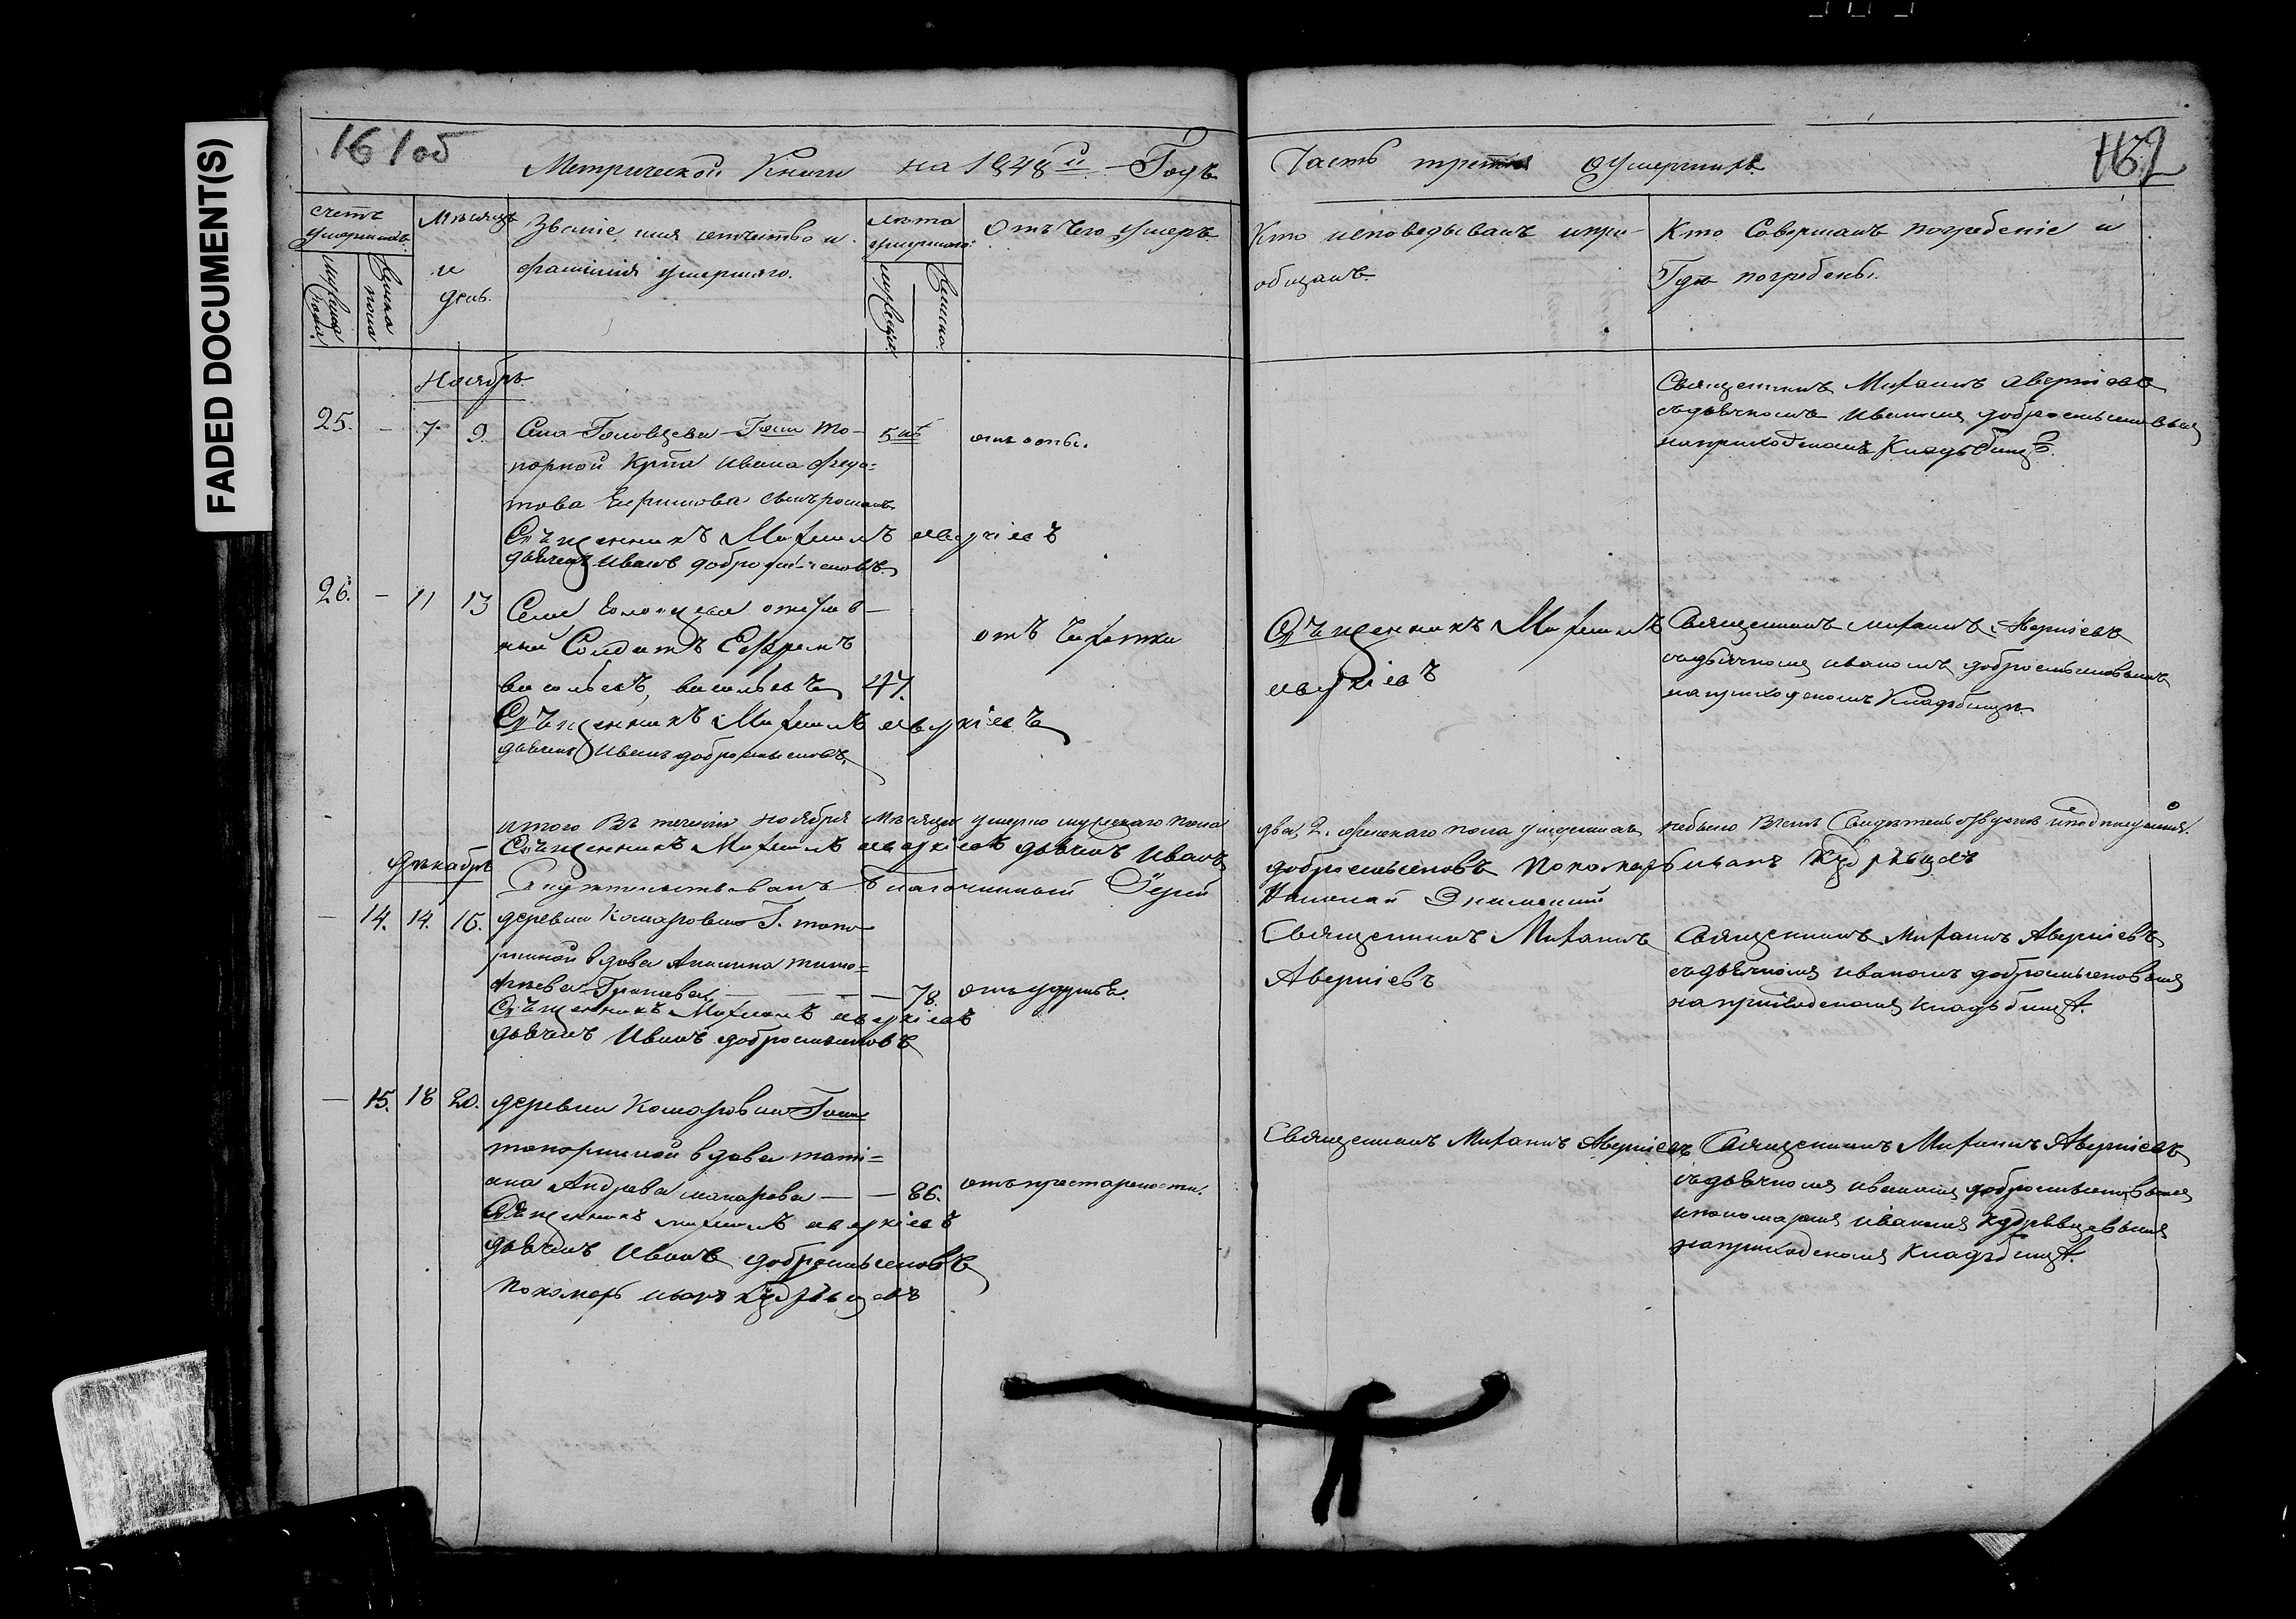 FADED DOCUMENT(S)
161об
162
Метрической Книги на 1848й Годъ
Часть третія о умершихъ
счетъ умершихъ
мужеска пола
женска пола
Мѣсяцъ и день.
Званіе, имя отчество и
фамилія умершаго.
лѣта умершаго
мужеска
женска
Отъ чего умеръ
Кто исповедывалъ и при-
общалъ
Кто Совершалъ погребеніе и
Гдѣ погребены.
Ноябрь
25. - 7 9.
Села Головцева
порной Крна Ивана Федо-
това
5
отъ оспы.
Священникъ Михаилъ Аверкіевъ
съ дьячкомъ Иваномъ Добросмысловымъ
на приходскомъ Кладбищѣ.
Священникъ Михаилъ Аверкіевъ
дьячекъ Иванъ Добросмысловъ
26. - 11 13
Села
Солдатъ Ефремъ
Васильевъ, Васильевъ 47.
отъ Чахотки
Священникъ Михаилъ
Аверкіевъ
Священникъ Михаилъ Аверкіевъ
съ дьячкомъ Иваномъ Добросмысловымъ
на приходскомъ Кладбищѣ
Священникъ Михаилъ Аверкіевъ
дьячекъ Иванъ Добросмысловъ
итого Въ теченіи ноября мѣсяца умерло мужескаго пола
два, 2. женскаго пола умершихъ небыло Въ чемъ Свидѣтельствуемъ и подписуемся.
Священникъ Михаилъ Аверкіевъ дьячекъ Иванъ
Добросмысловъ Пономарь Иванъ Кудрявцевъ
Свидѣтельствовалъ Благочинный Іерей
Николай
Декабрь
- 14. 14. 16.
деревни Комаровки Г. топо-
рниной вдова Акилина Тимо-
фѣева
78. отъ удушья.
Священникъ Михаилъ
Аверкіевъ
Священникъ Михаилъ Аверкіевъ
съ дьячкомъ Иваномъ Добросмысловымъ
на приходскомъ кладбищѣ.
Священникъ Михаилъ Аверкіевъ
дьячекъ Иванъ Добросмысловъ
- 15. 18 20.
деревни Комаровки
топорниной вдова тати-
ана Андрева макарова - - 86. отъ престарелости.
Священникъ Михаилъ Аверкіевъ
Священникъ Михаилъ Аверкіевъ
съ дьячкомъ Иваномъ Добросмысловымъ
и пономаремъ Иваномъ Кудрявцевымъ
на приходскомъ Кладбищѣ.
Священникъ Михаилъ Аверкіевъ
дьячекъ Иванъ Добросмысловъ
Пономарь Иванъ Кудрявцевъ